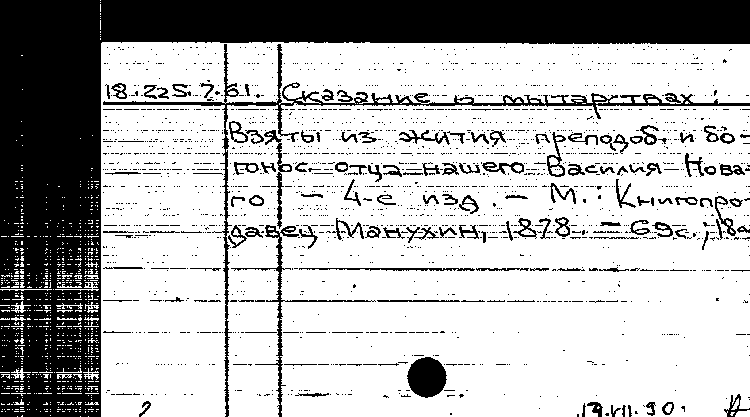 18.225.7.61. Сказание о мытарствах :
Взяты из жития преподоб. и бо-
гонос. отца нашего Василия Нова-
го – 4-е изд. – М. : Книгопро-
давец Манухин, 1878. – 69с.; 18
2 19.VII.90.